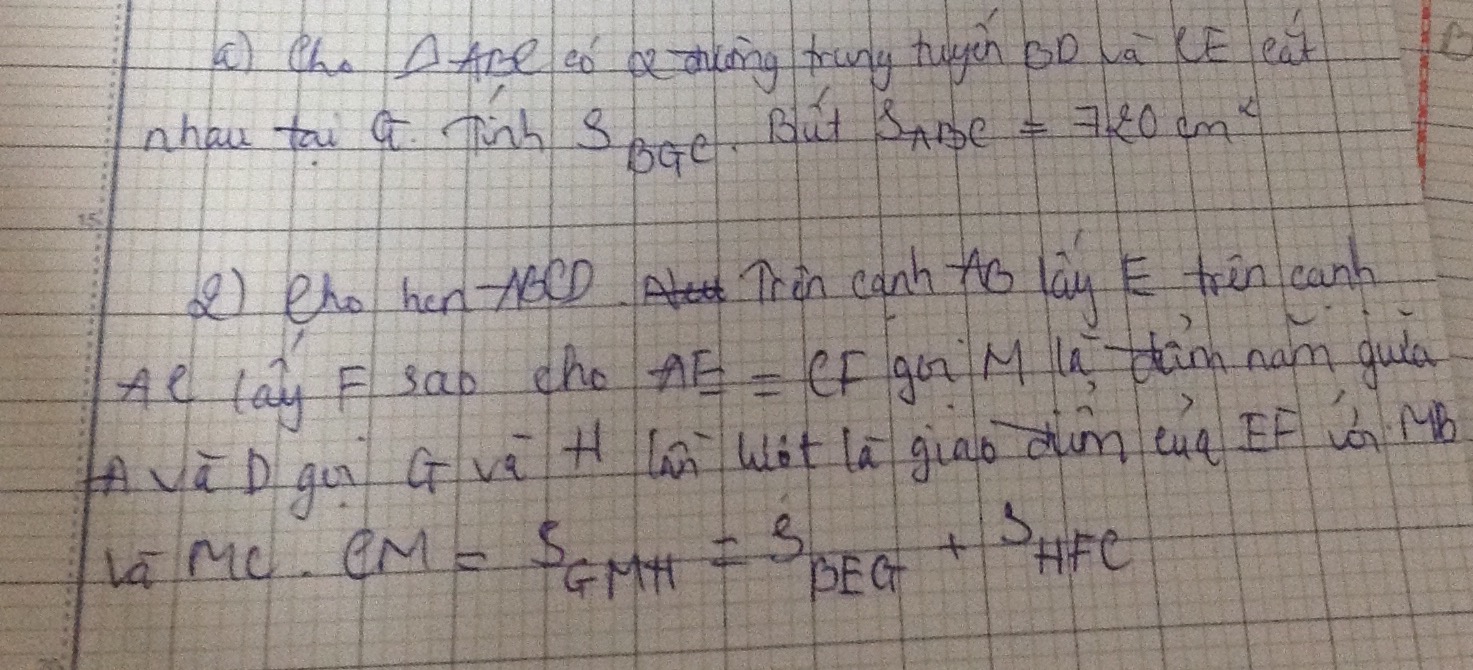 a) Cho Δ ABC có 2 đường trung tuyến BD và CE cắt
nhau tại G. Tính S BGC. Biết S ABC = 720 cm²
2) Cho hcn ABCD. Trên cạnh AB lấy E trên cạnh
AC lấy F sao cho AE = CF gọi M là điểm nằm giữa
A và D gọi G và H lần lượt là giao điểm của EF với MB
và MC. CM = S GMH = S BEG + S HFC